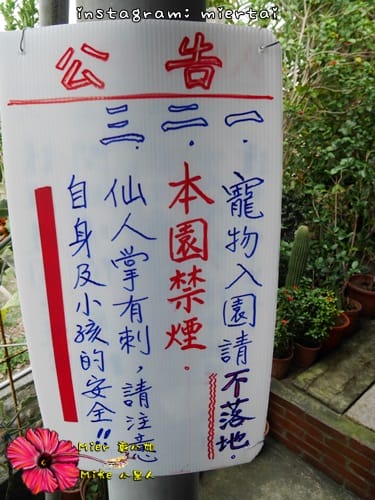 instagram: miertai
公告
一、寵物入園請不落地。
二、本園禁煙。
三、仙人掌有刺，請注意
自身及小孩的安全"
Mier
Mike 小星人